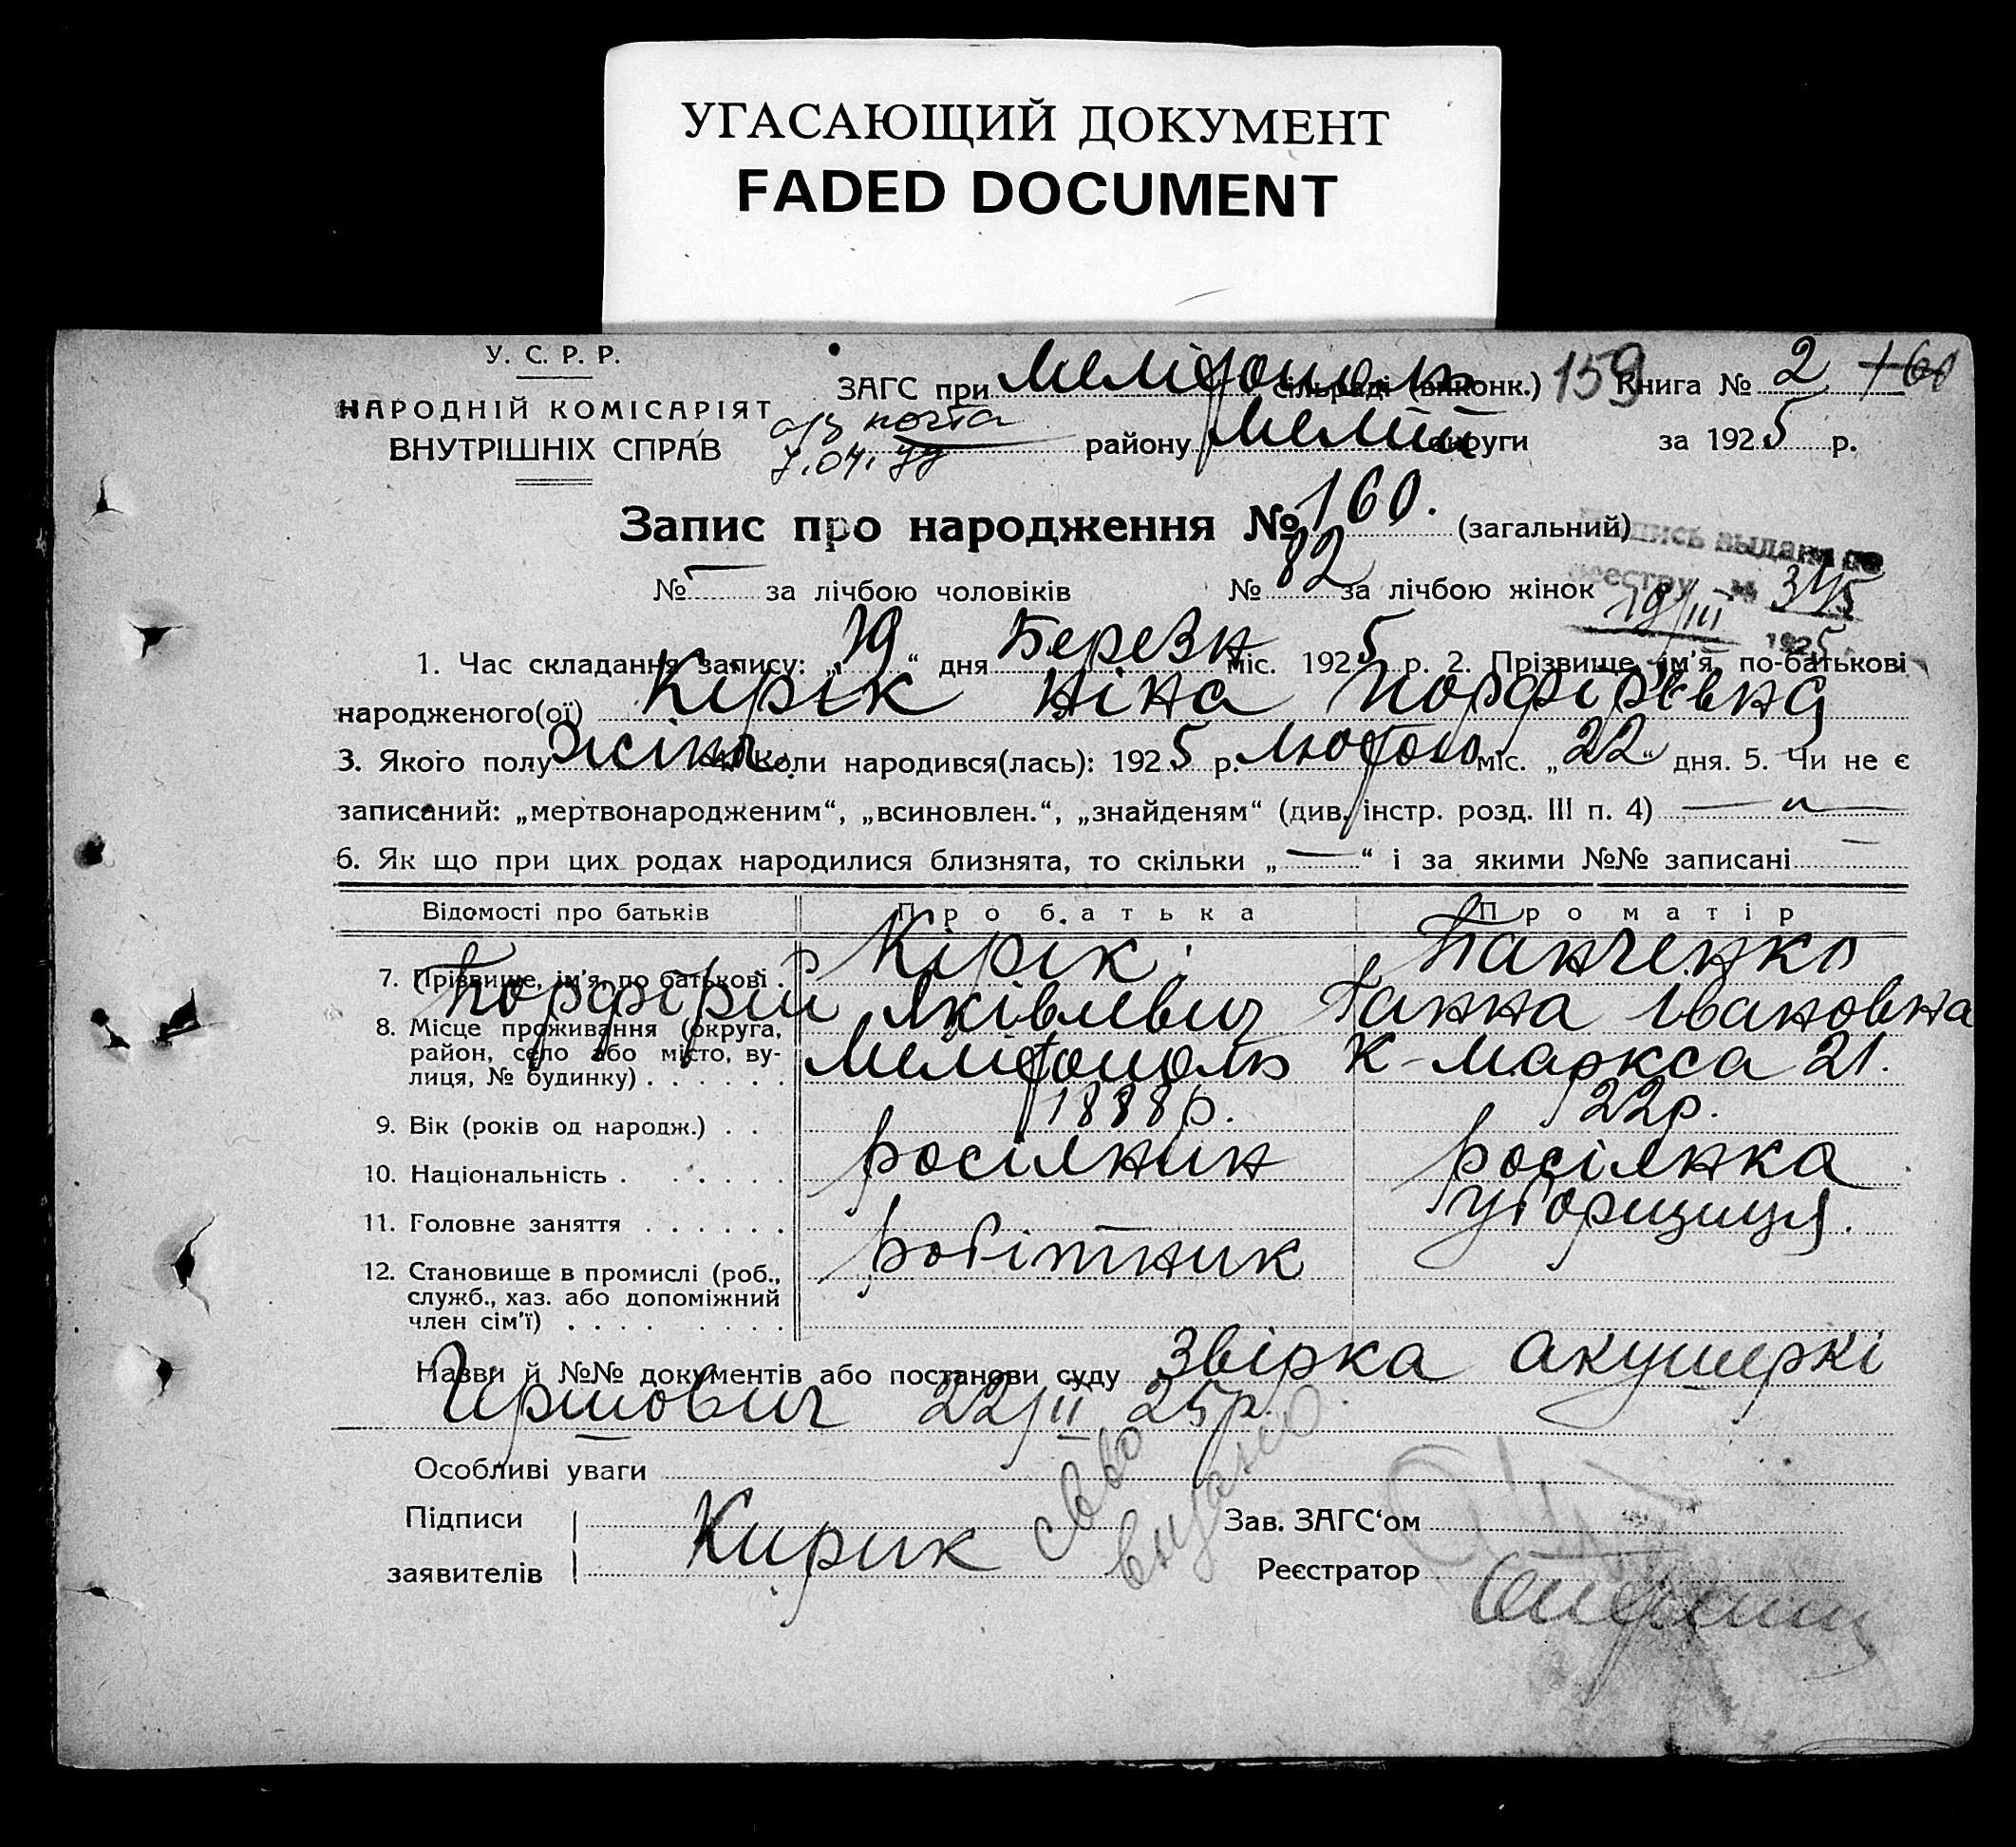 УГАСАЮЩИЙ ДОКУМЕНТ
FADED DOCUMENT
У. С. Р. Р.
НАРОДНІЙ КОМІСАРІЯТ
ВНУТРІШНІХ СПРАВ
ЗАГС при Мелітополь сільраді (виконк.) 159 Книга № 2 160
а/з почта
7.04.
району Меліт округи за 1925 р.
Запис про народження № 160. (загальний)
№ — за лічбою чоловіків № 82 за лічбою жінок
выдана по
реестру № 345
19/III 1925
1. Час складання запису: „19“ дня Березн міс. 1925 р. 2. Прізвище, ім’я, по-батькові
народженого(ої) Кірік Ніна Порфірівна
3. Якого полу жіноч. 4. Коли народився(лась): 1925 р. Лютого міс. „22“ дня. 5. Чи не є
записаний: „мертвонародженим“, „всиновлен.“, „знайденям“ (див. інстр. розд. III п. 4) — „ —
6. Як що при цих родах народилися близнята, то скільки „—“ і за якими №№ записані —
Відомості про батьків Про батька Про матір
7. Прізвище, ім’я, по батькові . Кірік Порфірій Яківлевич Панченко Ганна Івановна
8. Місце проживання (округа,
район, село або місто, ву-
лиця, № будинку) . . . . . . Мелітополь К-Маркса 21.
9. Вік (років од народж.) . . 1888 р. 22 р.
10. Національність . . . . . . росіянин росіянка
11. Головне заняття . . . . . .
12. Становище в промислі (роб.,
служб., хаз. або допоміжний
член сім’ї) . . . . . . . . . робітник
Назви й №№ документів або постанови суду Звірка акушеркі
Гиршович 22/II 25р.
Особливі уваги
Підписи
заявителів Кирик
с-во выдано
Зав. ЗАГС‘ом
Реєстратор